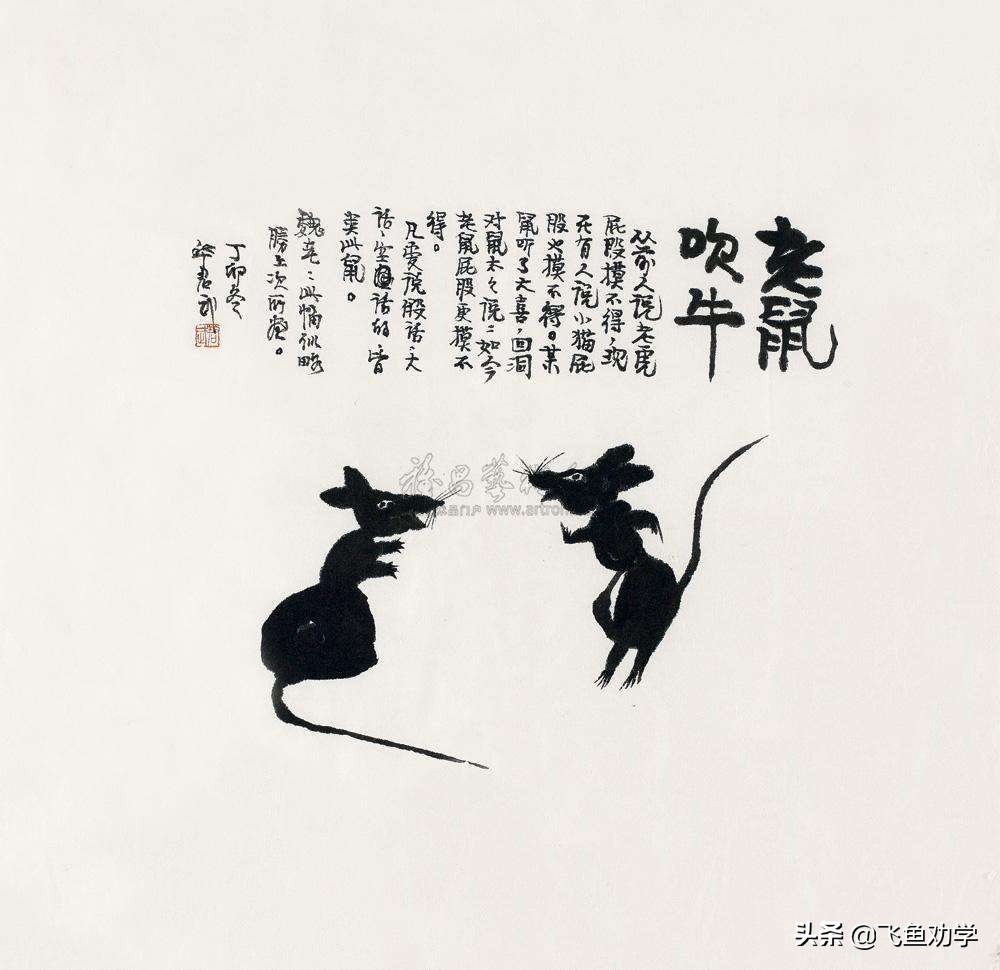 老鼠
吹牛
从前人说老虎
屁股摸不得，现
在有人说小猫屁
股也摸不得。某
鼠听了大喜，回洞
对鼠太太说：如今
老鼠屁股更摸不
得。
凡爱说假话、大
话、空话的，皆
类此鼠。
魏老：此幅似略
胜上次所。
丁卯冬
品门户 www.artron
头条 @飞鱼劝学